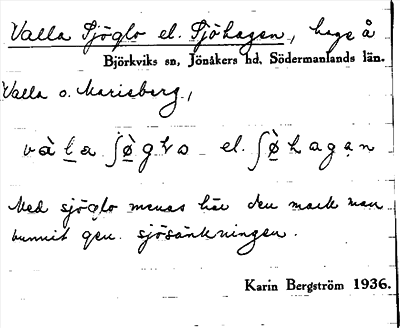 Valla Sjöglo el. Sjöhagen, hage å
Björkviks sn, Jönåkers hd, Södermanlands län.
Valla o. Marieberg,
el.
Med sjöglo menas här den mark man
vunnit gen. sjösänkningen.
Karin Bergström 1936.